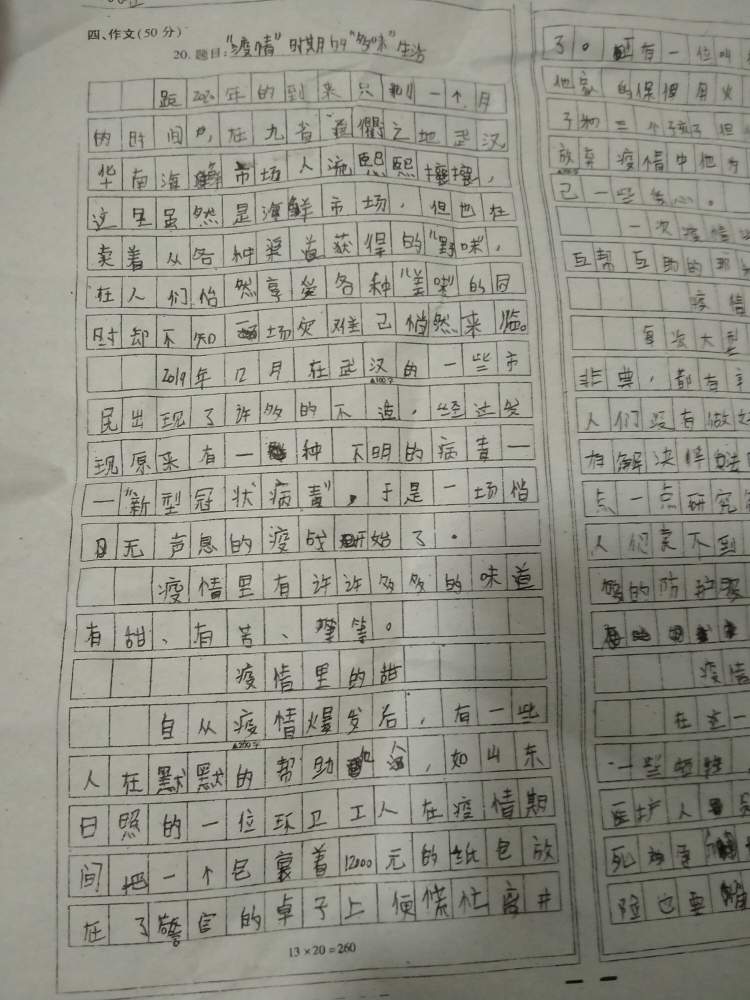 四、作文(50分)
20. 题目:"疫情"时期的"多味"生活
距2020年的到来只剩一个月
的时间内,在九省通衢之地武汉
华南海鲜市场人流熙熙攘攘,
这里虽然是海鲜市场,但也在
卖着从各种渠道获得的"野味",
在人们怡然享受各种"美味"的同
时却不知一场灾难已悄然来临。
2019年12月在武汉的一些市
▲100字
民出现了许多的不适,经过发
现原来有一种不明的病毒一
一"新型冠状病毒",于是一场悄
无声息的疫战开始了。
疫情里有许许多多的味道
有甜、有苦、等。
疫情里的甜
自从疫情爆发后,有一些
▲200字
人在默默的帮助,如山东
日照的一位环卫工人在疫情期
间把一个包裹着12000元的纸包放
在了警官的桌子上便慌忙离开
13×20=260
了。还有一位叫
他家的保
子和三个孩子但
放弃疫情中他为
己一些爱心。
一次疫情
互帮互助的那
疫情
每次大型
非典,都有
人们没有做好
有解决
点一点研究
人们买不到
够的防护服
疫情
在这一
一些牺牲
医护人员
死
险也要